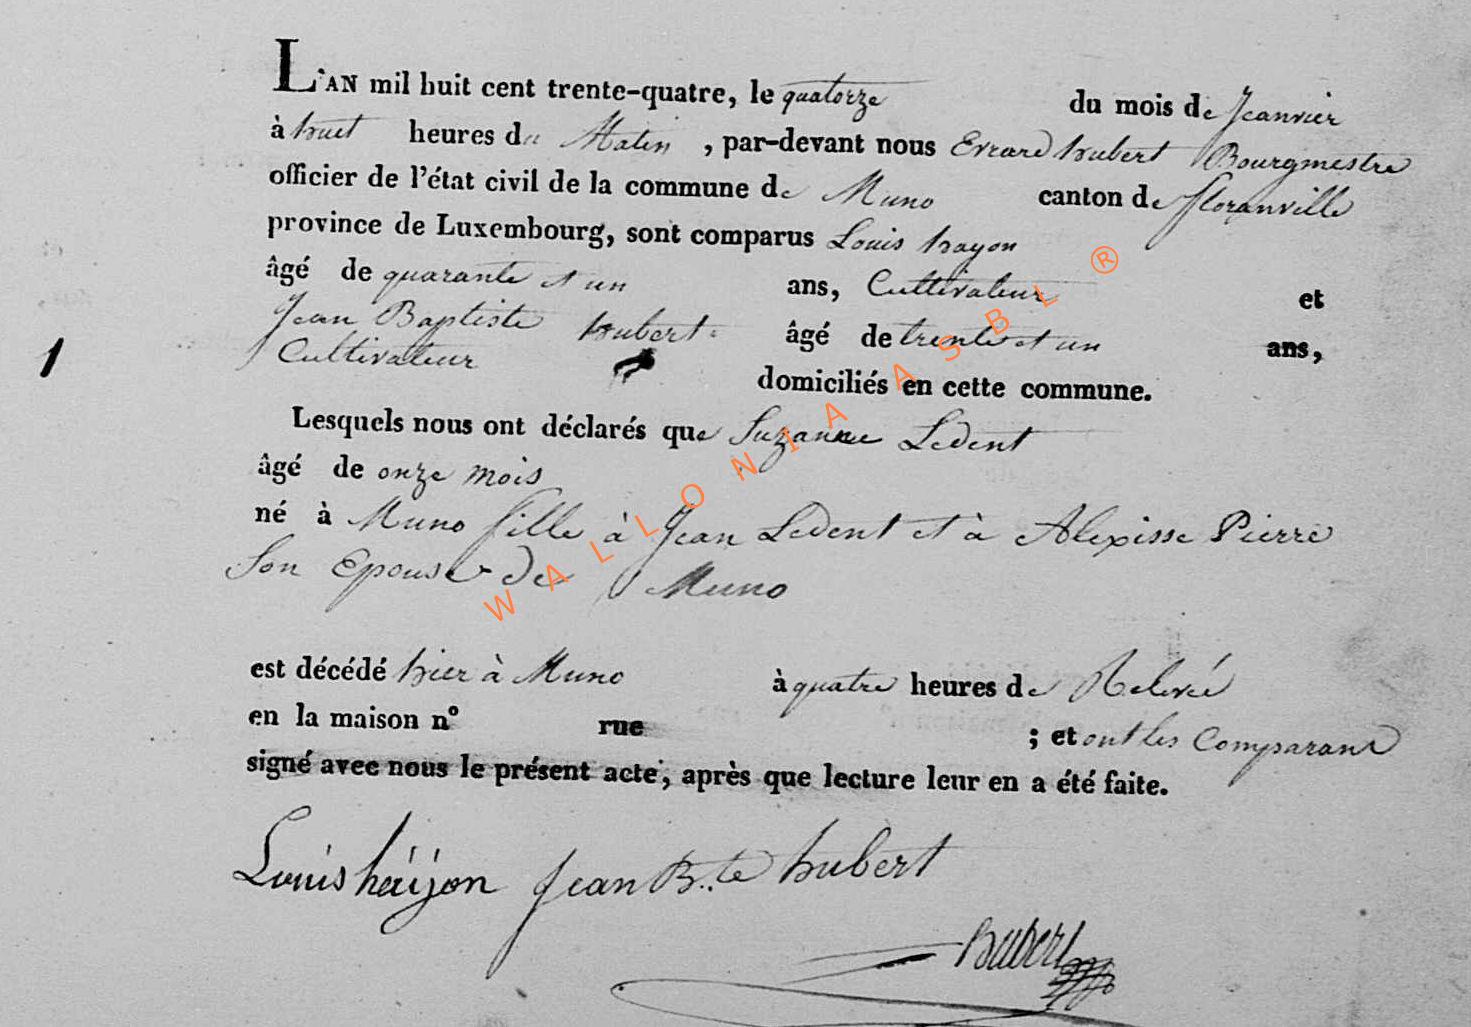 L'AN mil huit cent trente-quatre, le quatorze du mois de Jeanvier
à huit heures du Matin, par-devant nous Errard hubert Bourgmestre
officier de l'état civil de la commune de Muno canton de floranville
province de Luxembourg, sont comparus Louis hayon
âgé de quarante et un ans, Cultivateur et
Jean Baptiste hubert âgé de trente et un ans,
Cultivateur
domiciliés en cette commune.
1
Lesquels nous ont déclarés que Suzanne Ledent
âgé de onze mois
né à Muno fille à Jean Ledent et à Alexisse Pierre
Son Epouse de Muno
est décédé hier à Muno à quatre heures de Relevé
en la maison n° rue ; et ont les Comparant
signé avec nous le présent acte, après que lecture leur en a été faite.
Louis häijon Jean B..te hubert
Hubert
WALLONIA ASBL ®